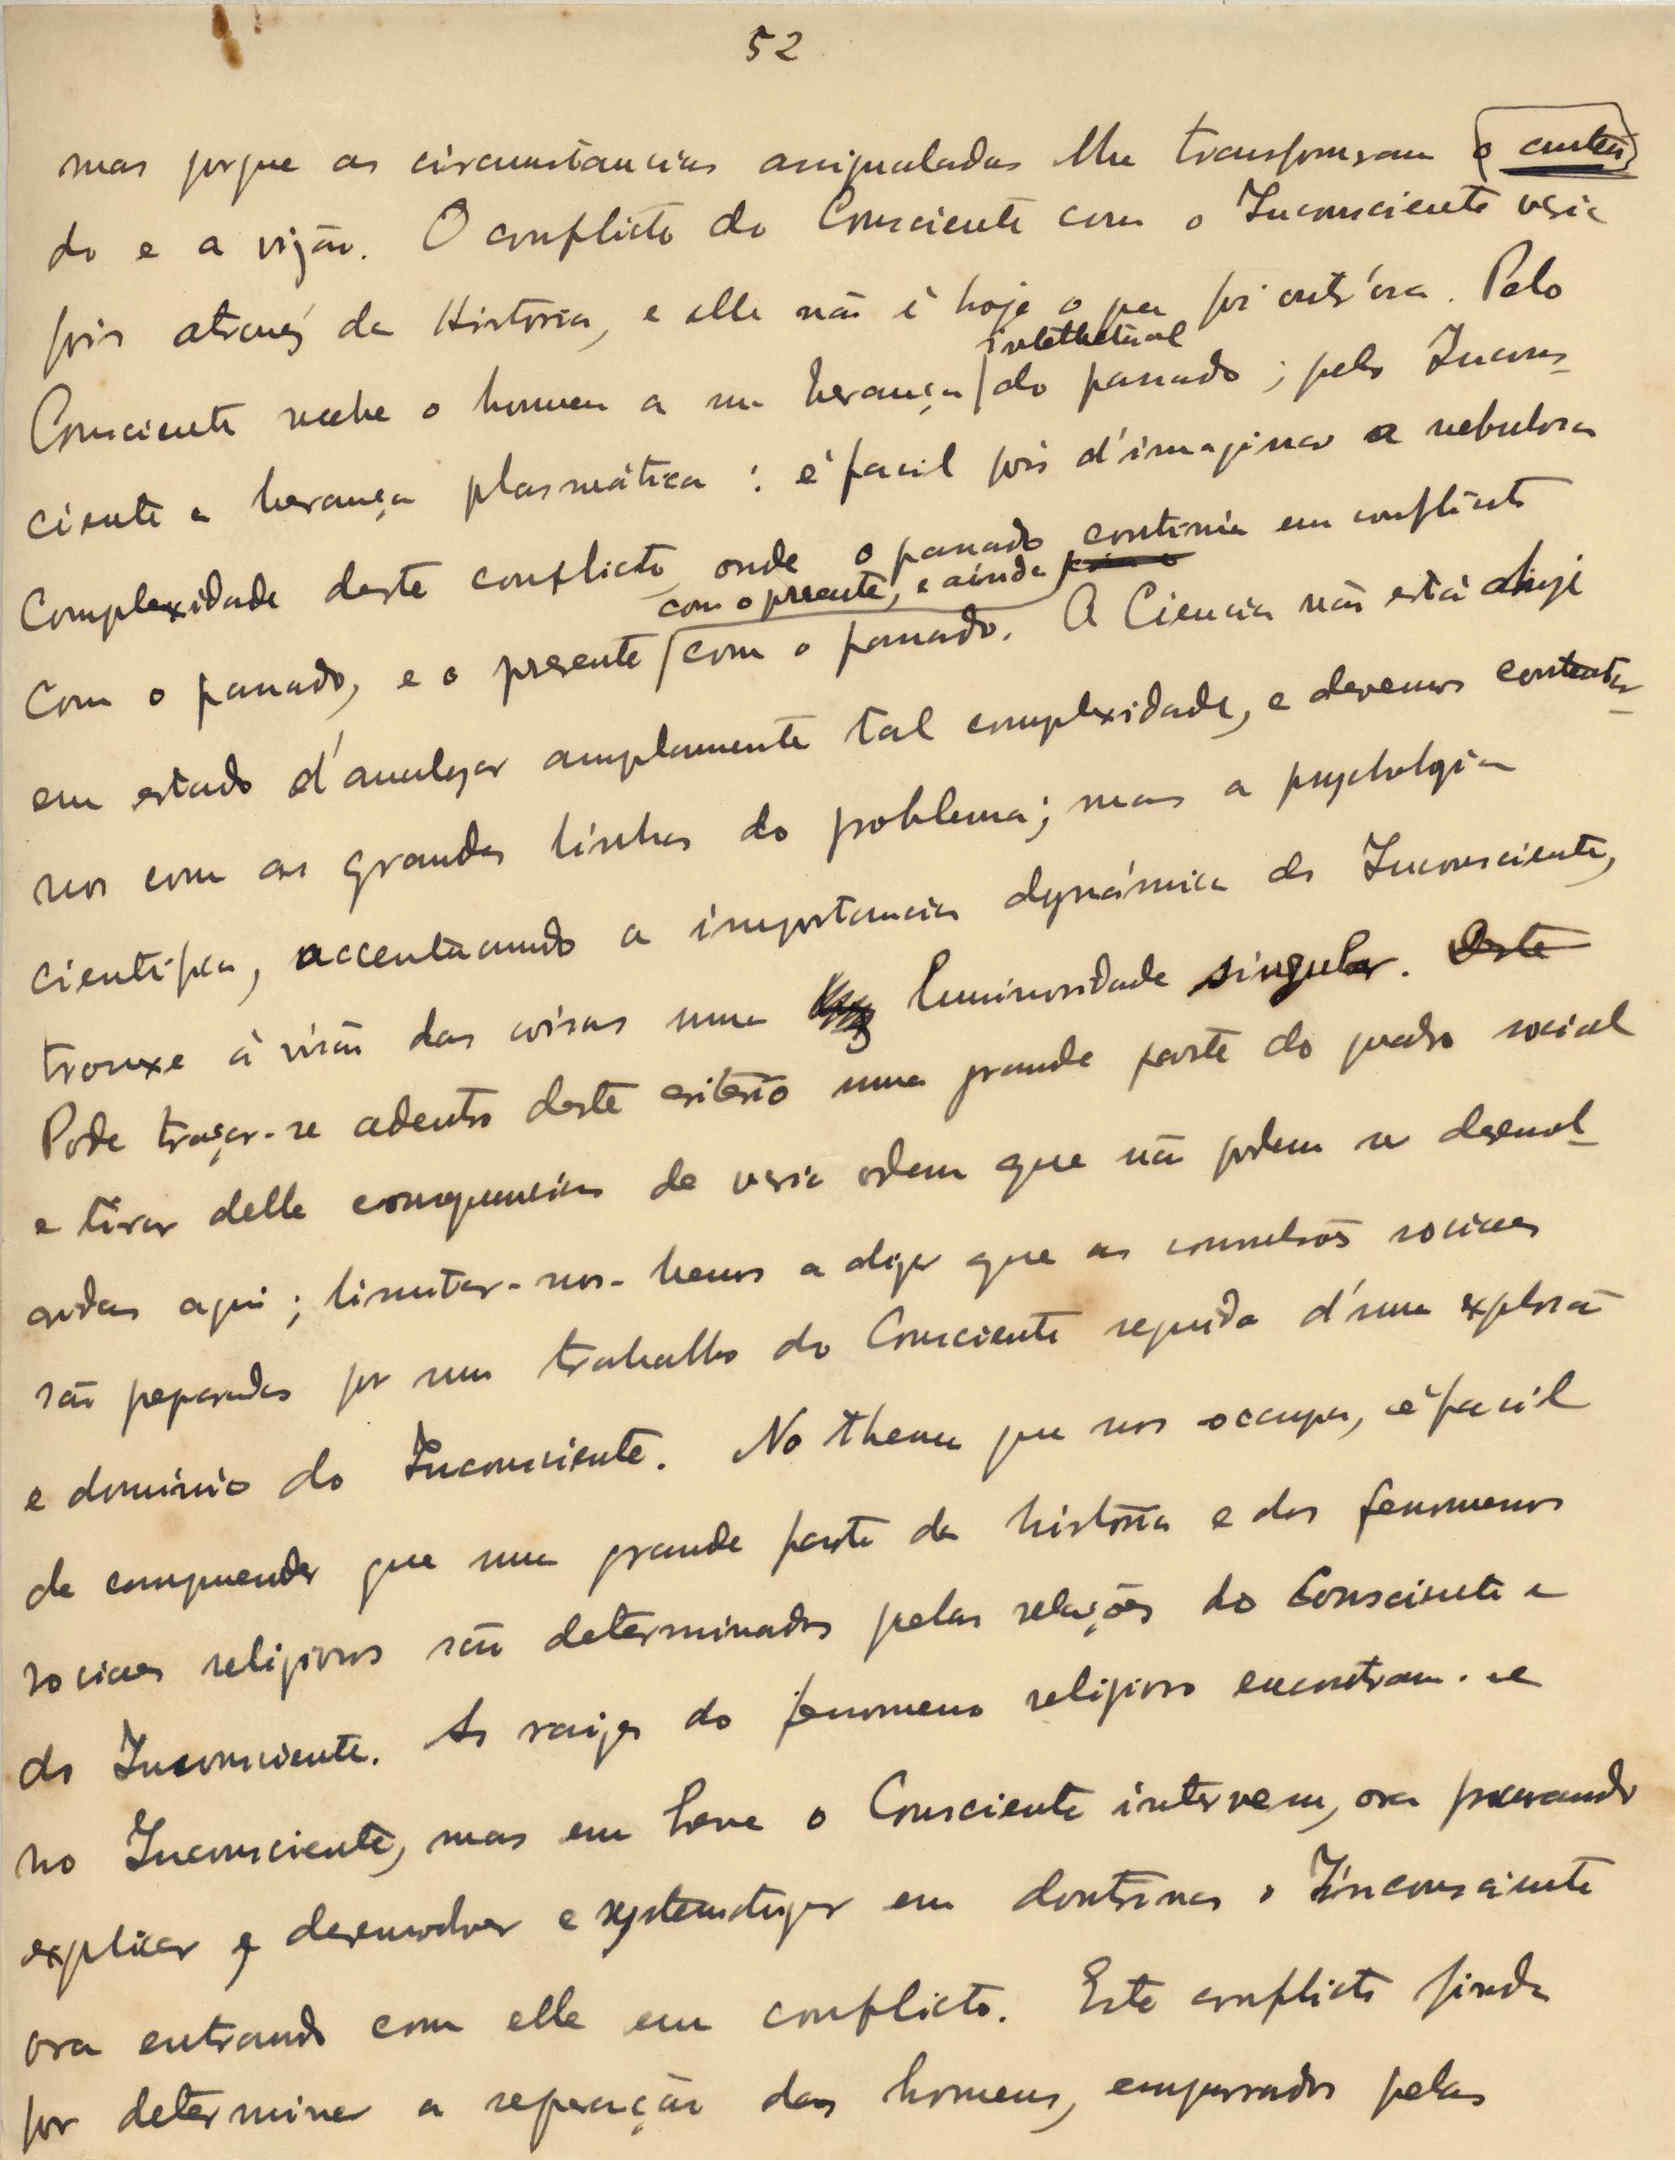 52
mas porque as circumstancias assignaladas lhe transformam o conteú
do e a vizão. O conflicto do Consciente com o Inconsciente varia
pois atravez da Historia, e elle não é hoje o que foi outr'ora. Pelo
Consciente recebe o homem a sua herança intellectual do passado; pelo Incons-
ciente a herança plasmática: é facil pois d'imaginar a nebulosa
complexidade deste conflicto, onde o passado continúa em conflicto
com o passado, e o presente com o presente, e ainda com o passado. A Ciencia não está hoje
em estado d'analyzar amplamente tal complexidade, e devemos contentar-
nos com as grandes linhas do problema; mas a psychologia
cientifica, accentuando a importancia dynámica do Inconsciente,
trouxe á visão das coisas uma luminosidade singular. Este
Pode traçar-se adentro deste criterio uma grande parte do quadro social
e tirar delle consequencias de varia ordem que não podem ser desenvol-
vidas aqui; limitar-nos-hemos a dizer que as convulsões sociaes
são preparadas por um trabalho do Consciente seguida d'uma explosão
e dominio do Inconsciente. No thema que nos occupa, é facil
de comprender que uma grande parte da história e dos fenomenos
sociaes religiosos são determinados pelas relações do Consciente e
do Inconsciente. As raizes do fenomeno religioso encontram-se
no Inconsciente, mas em breve o Consciente intervem, ora procurando
explicar e desenvolver e systematizar em doutrinas o Inconsciente
ora entrando com elle em conflicto. Este conflicto finda
por determinar a separação dos homens, empurrados pelas